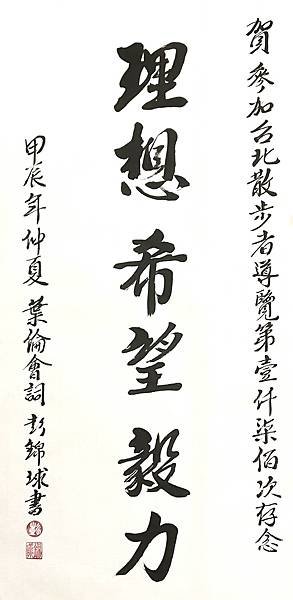 賀參加台北散步者導覽第壹仟柒佰次存念
理想希望毅力
甲辰年仲夏葉倫會詞彭錦球書